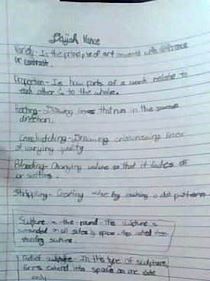 Vance
Variety- Is the principle of art concerned with difference
or contrast.
Proportion- Is how parts of a work relate to
each other & to the whole.
Hatching- Drawing lines that run in the same
direction.
Crosshatching- Drawing crisscrossing lines
of varying
Blending- Changing value so that it fades
or
Stippling- Creating value by making dot patterns
Sculpture in the round- this sculpture is
surrounded on all sides by space. Also called free
standing sculpture.
Relief sculpture- In this type of sculpture,
forms extend into space on one side
only